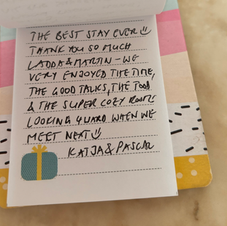 THE BEST STAY EVER ☺
THANK YOU SO MUCH
LADDA & MARTIN - WE
VERY ENJOYED THE TIME,
THE GOOD TALKS, THE FOOD
& THE SUPER COZY ROOMS
LOOKING 4WARD WHEN WE
MEET NEXT ☺
KATJA & PASCAL